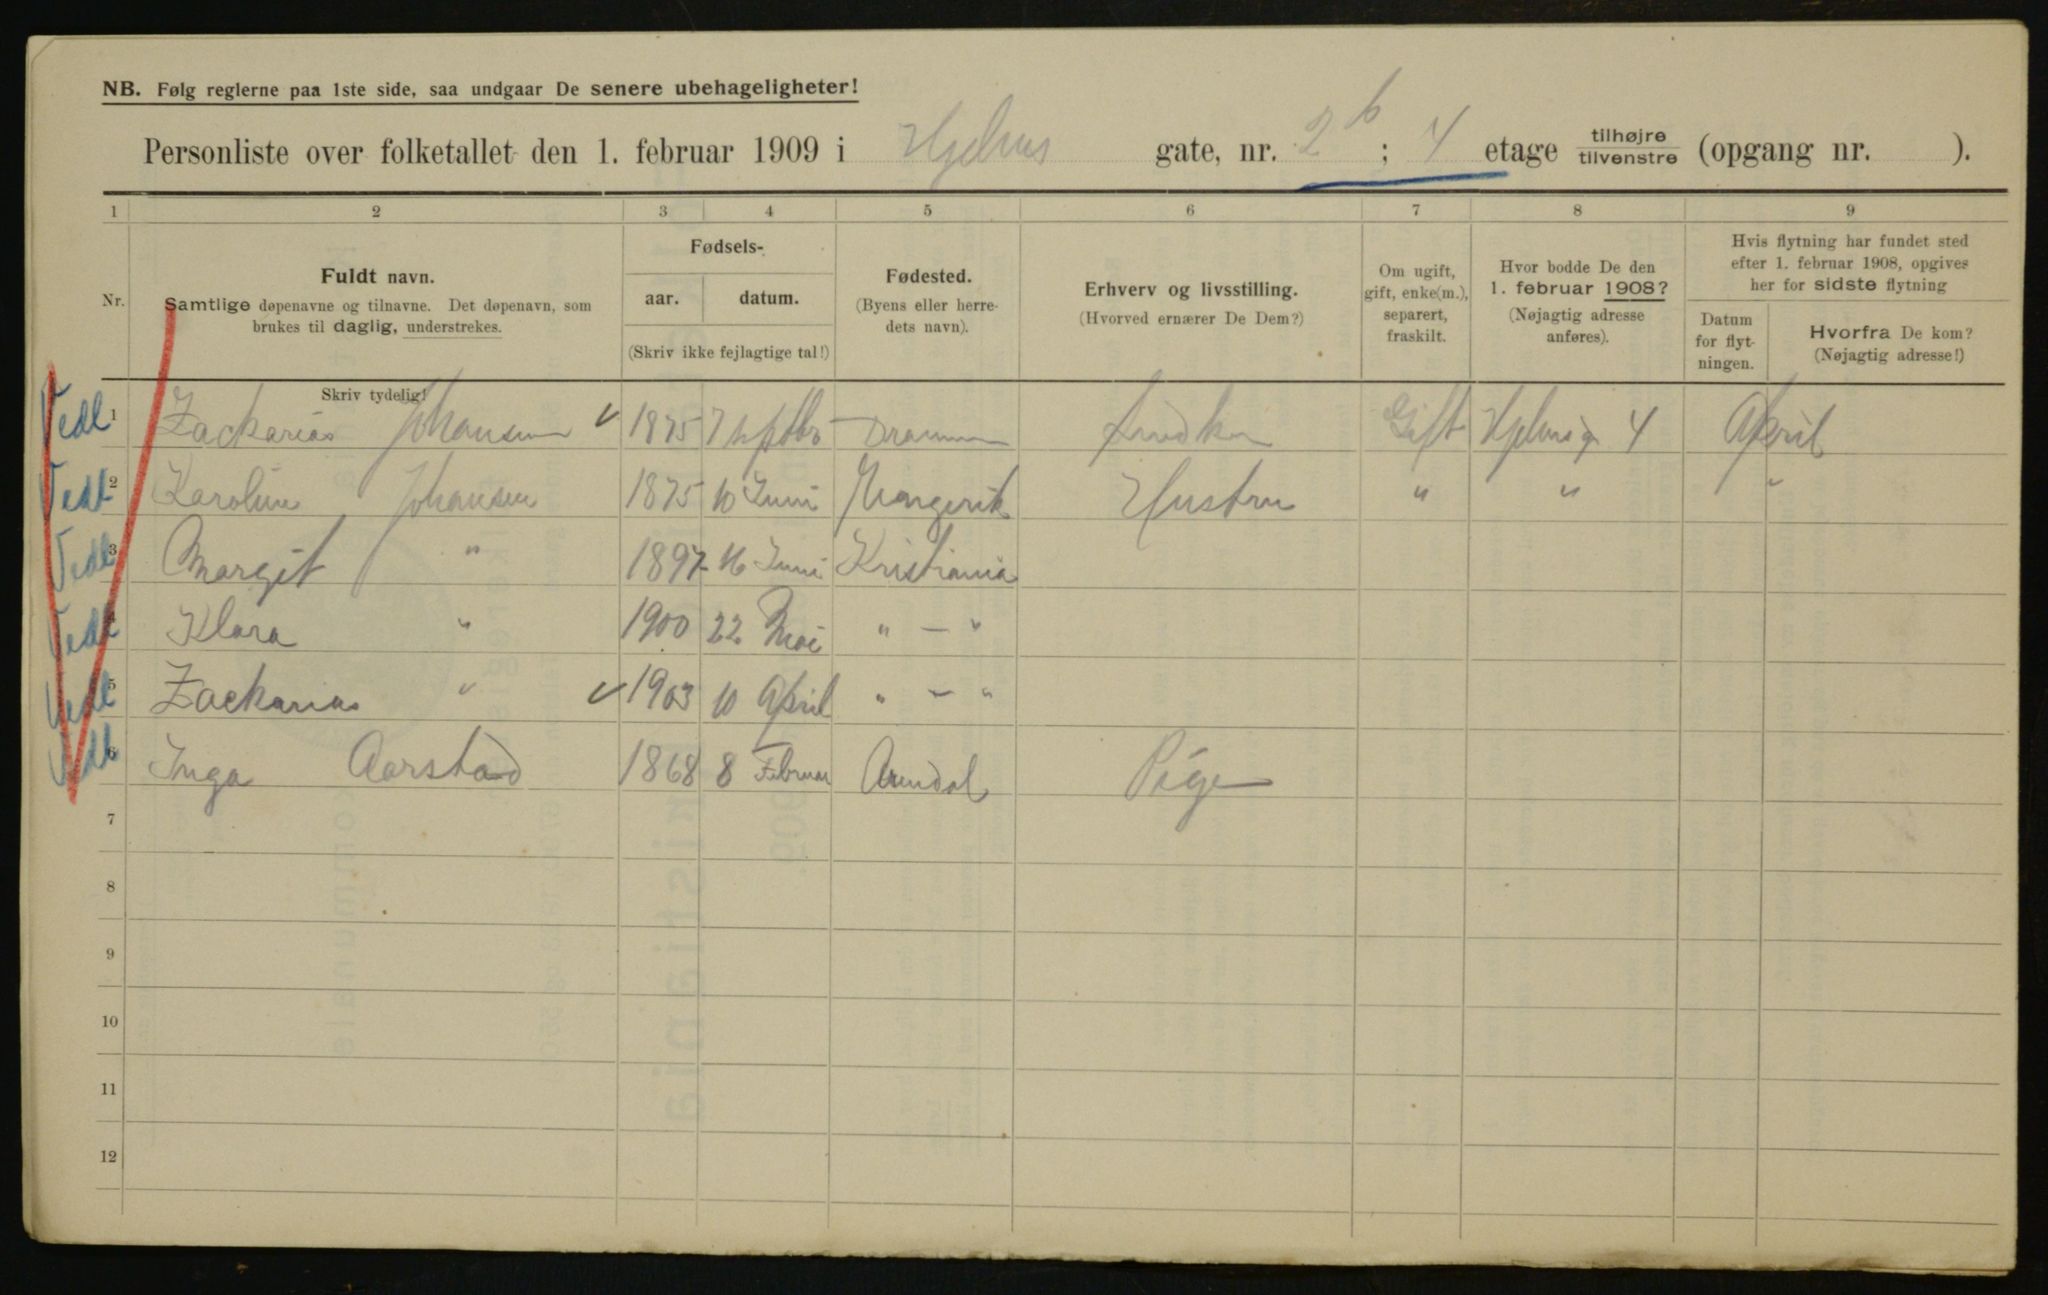 NB. Følg reglerne paa 1ste side, saa undgaar De senere ubehageligheter!
Personliste over folketallet den 1. februar 1909 i Hjelms gate, nr. 2b ; 4 etage tilhøjre tilvenstre (opgang nr. ).
1 2 3 4 5 6 7 8 9
Nr.
Fuldt navn.
Samtlige døpenavne og tilnavne. Det døpenavn, som
brukes til daglig, understrekes.
Skriv tydelig!
Fødsels-
aar. datum.
(Skriv ikke fejlagtige tal!)
Fødested.
(Byens eller herre-
dets navn).
Erhverv og livsstilling.
(Hvorved ernærer De Dem?)
Om ugift,
gift, enke(m.),
separert,
fraskilt.
Hvor bodde De den
1. februar 1908?
(Nøjagtig adresse
anføres).
Hvis flytning har fundet sted
efter 1. februar 1908, opgives
her for sidste flytning
Datum
for flyt-
ningen.
Hvorfra De kom?
(Nøjagtig adresse!)
Vedl 1 Zackarias Johansen ✓ 1875 7 Septbr Drammen Gift Hjelmsg 4 April
Vedl 2 Karoline Johansen 1875 10 Juni Hustru " " "
Vedl 3 Margit " 1897 16 Juni Kristiania
Vedl 4 Klara " 1900 22 Mai " — "
Vedl 5 Zackarias " ✓ 1903 10 April " — "
Vedl 6 Inga Aarstad 1868 8 Februar Arendal Pige
7
8
9
10
11
12